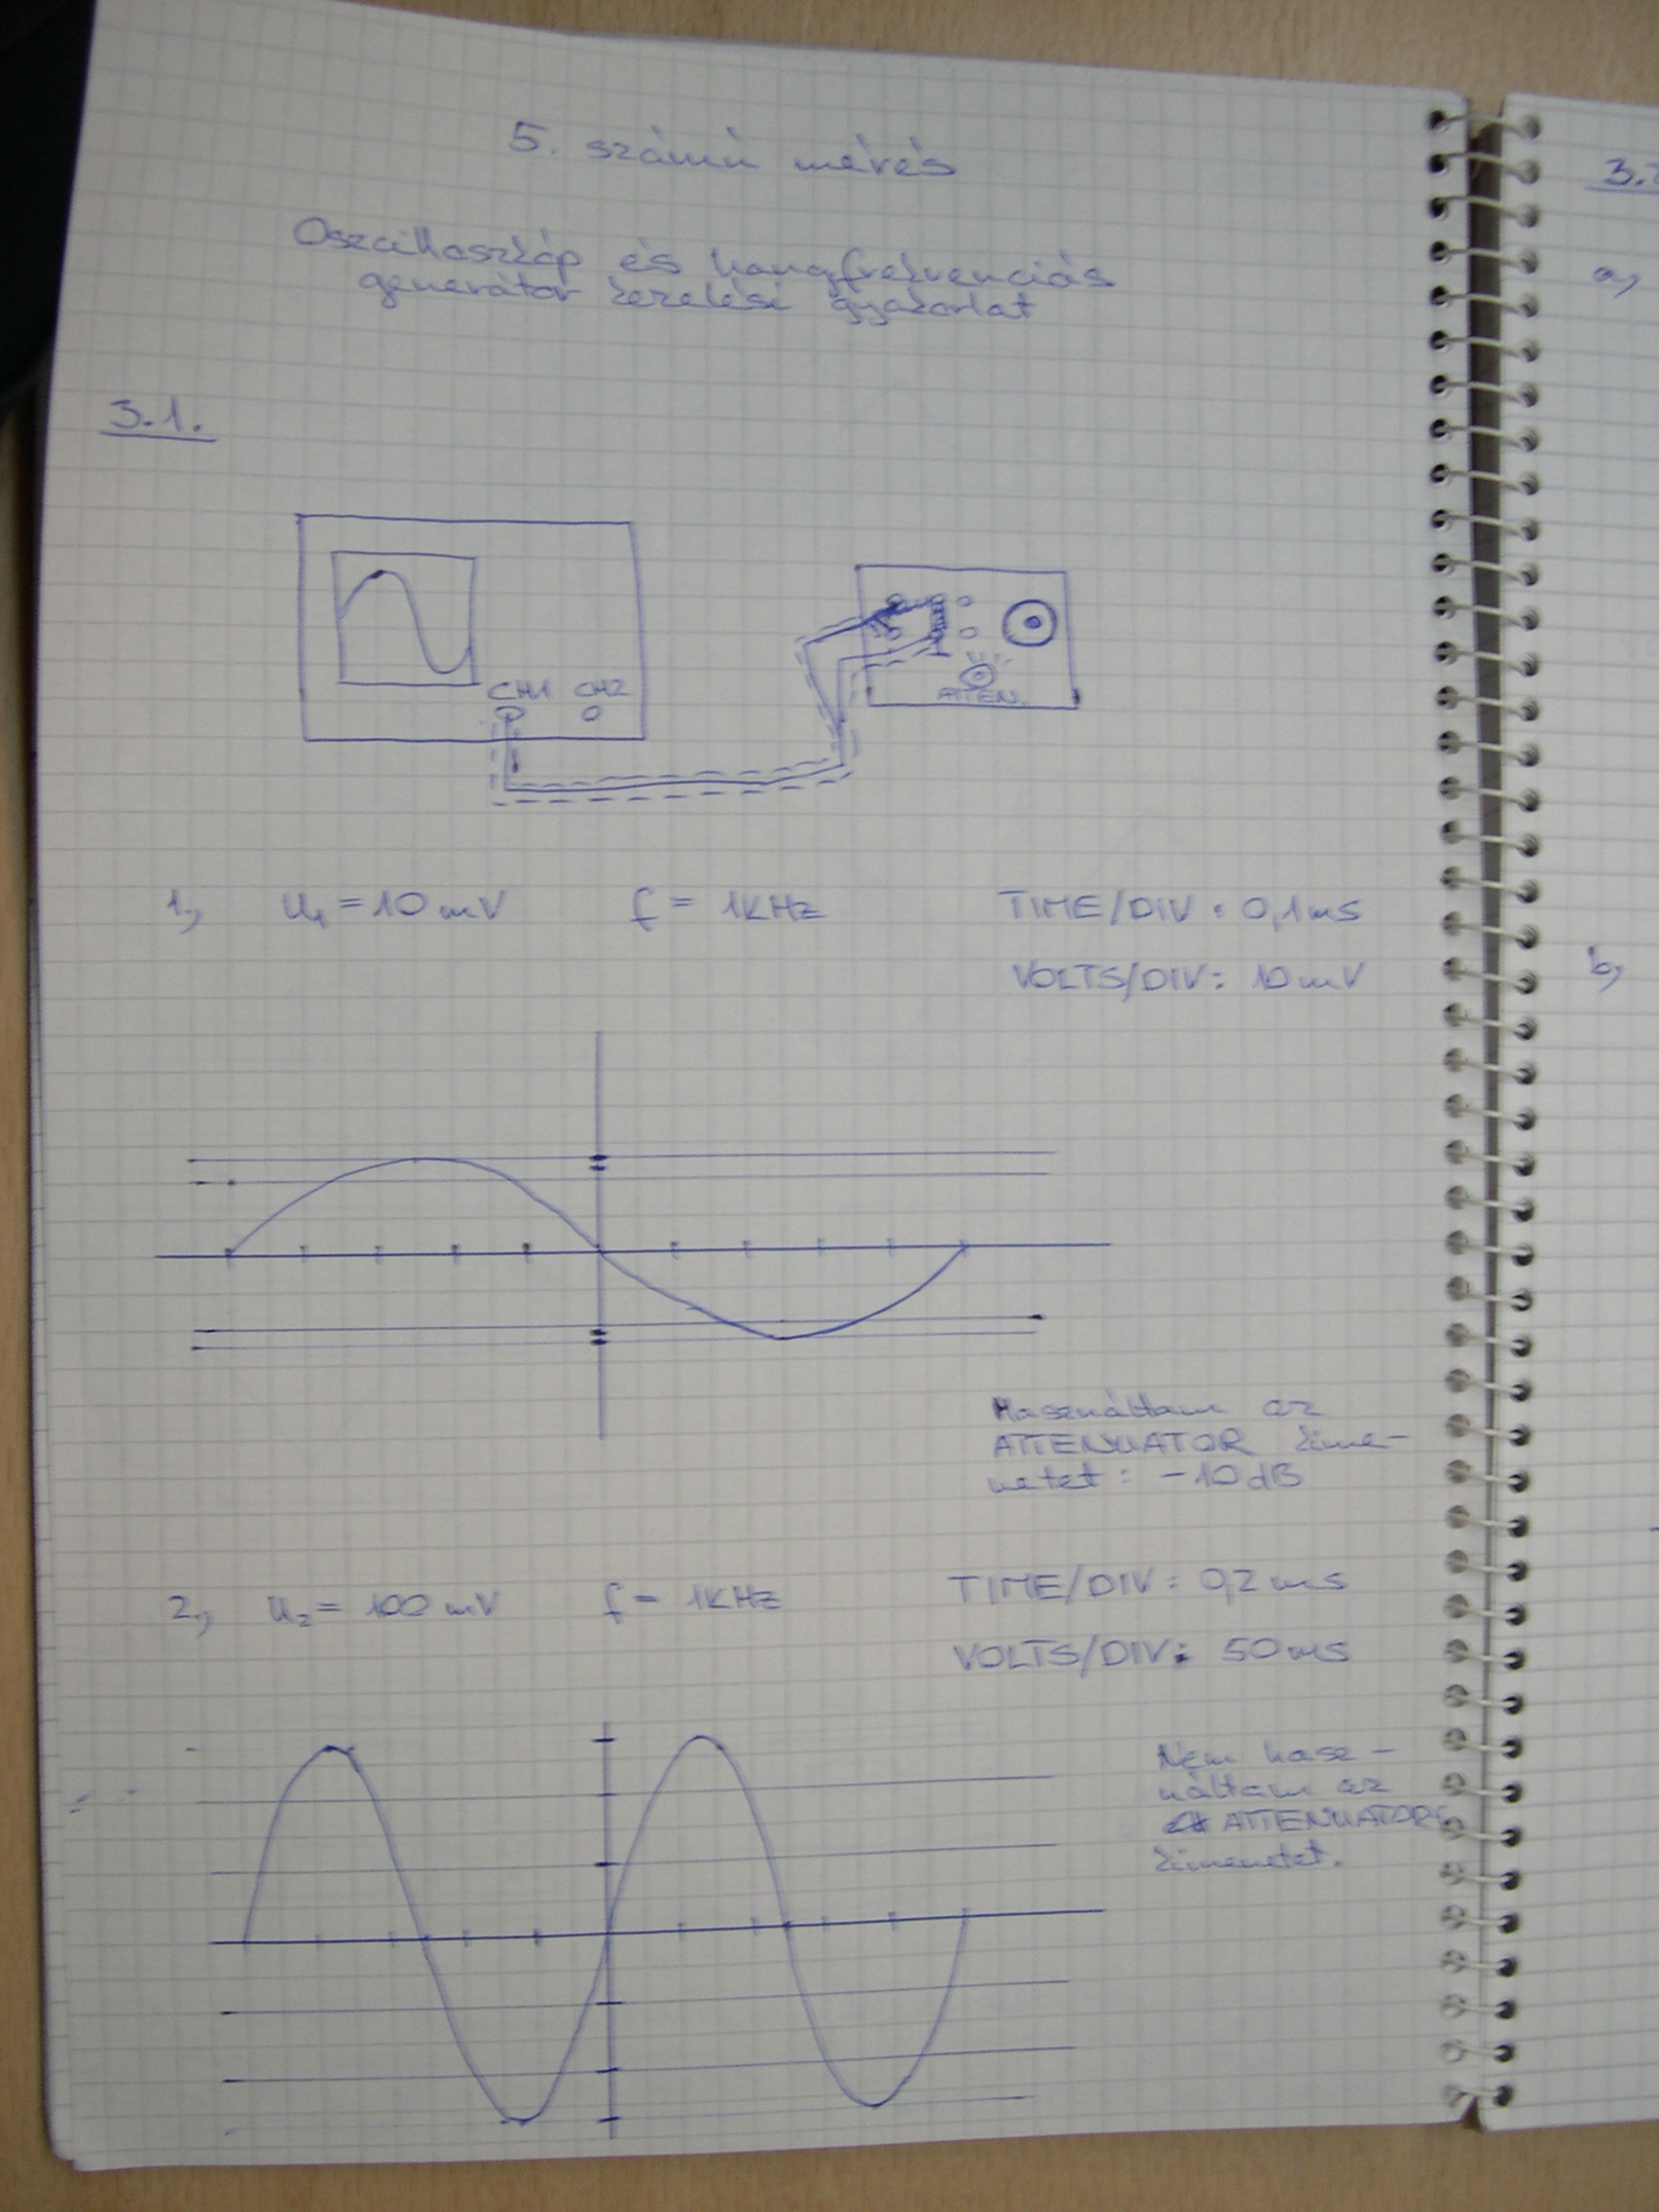 5. számú mérés
Oszcilloszkóp és hangfrekvenciás
generátor kezelési gyakorlat
3.1.
CH1 CH2
ATTEN.
1, U₁ = 10 mV f = 1KHz TIME/DIV : 0,1ms
VOLTS/DIV: 10 mV
Használtam az
ATTENUATOR kime-
netet: -10 dB
2., U₂ = 100 mV f = 1KHz TIME/DIV: 0,2 ms
VOLTS/DIV: 50 ms
Nem hasz-
náltam az
ATTENUATOR
kimenetet.
a,
b,